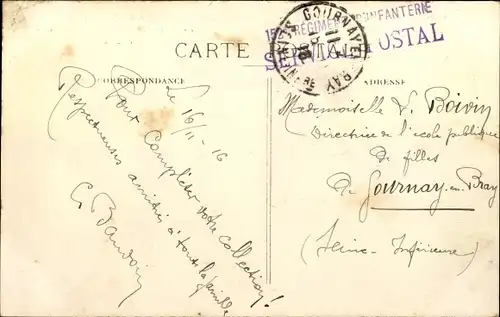 CARTE POSTALE
RÉGIMENT D'INFANTERIE
SERVICE POSTAL
GOURNAY-EN-BRAY
CORRESPONDANCE
ADRESSE
Le 16/11-16
Pour compléter votre collection!
Respectueuses amitiés à toute la famille
G. Baudoin
Mademoiselle V. Boivin
Directrice de l'école publique
de filles
de Gournay-en-Bray
(Seine-Inférieure)